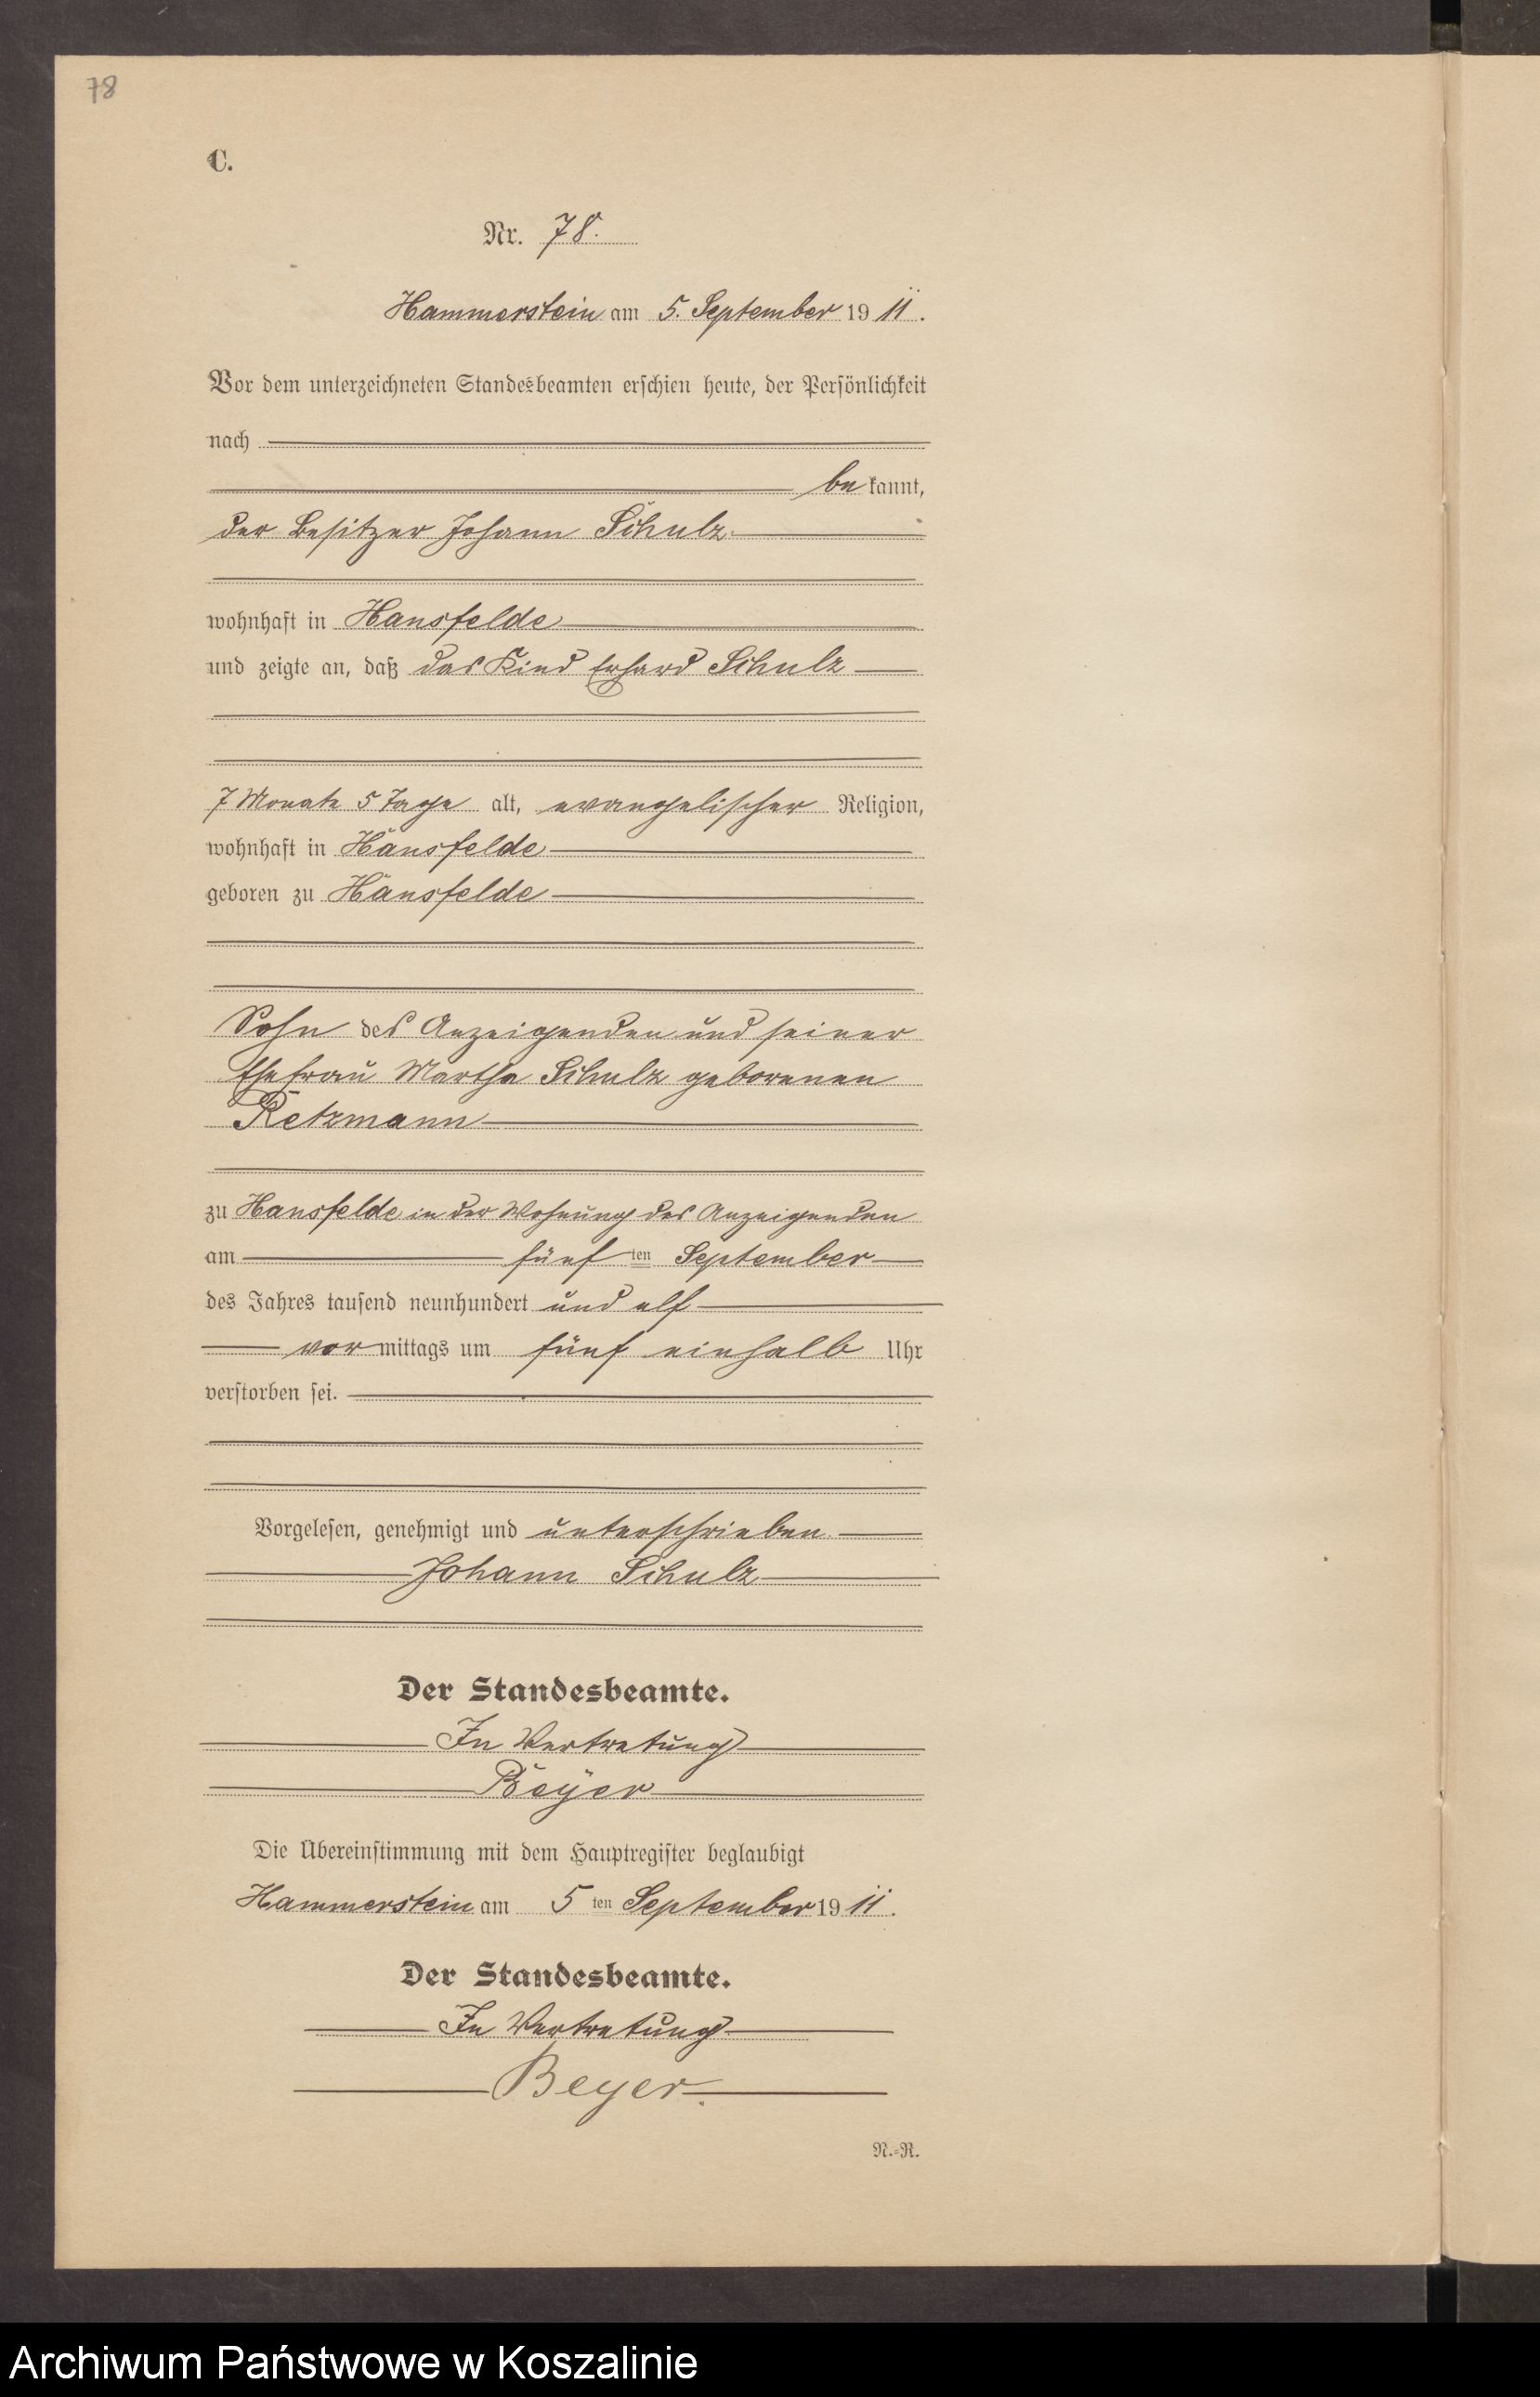 78
C.
Nr. 78.
Hammerstein am 5. September 1911.
Vor dem unterzeichneten Standesbeamten erschien heute, der Persönlichkeit
nach
be kannt,
der Besitzer Johann Schulz
wohnhaft in Hansfelde
und zeigte an, daß das Kind Erhard Schulz
7 Monate 5 Tage alt, evangelischer Religion,
wohnhaft in Hansfelde
geboren zu Hansfelde
Sohn des Anzeigenden und seiner
Ehefrau Martha Schulz geborenen
Retzmann
zu Hansfelde in der Wohnung des Anzeigenden
am fünf ten September
des Jahres tausend neunhundert und elf
vor mittags um fünf einhalb Uhr
verstorben sei.
Vorgelesen, genehmigt und unterschrieben.
Johann Schulz
Der Standesbeamte.
In Vertretung
Beyer
Die Übereinstimmung mit dem Hauptregister beglaubigt
Hammerstein am 5 ten September 1911.
Der Standesbeamte.
In Vertretung
Beyer.
N.-R.
Archiwum Państwowe w Koszalinie